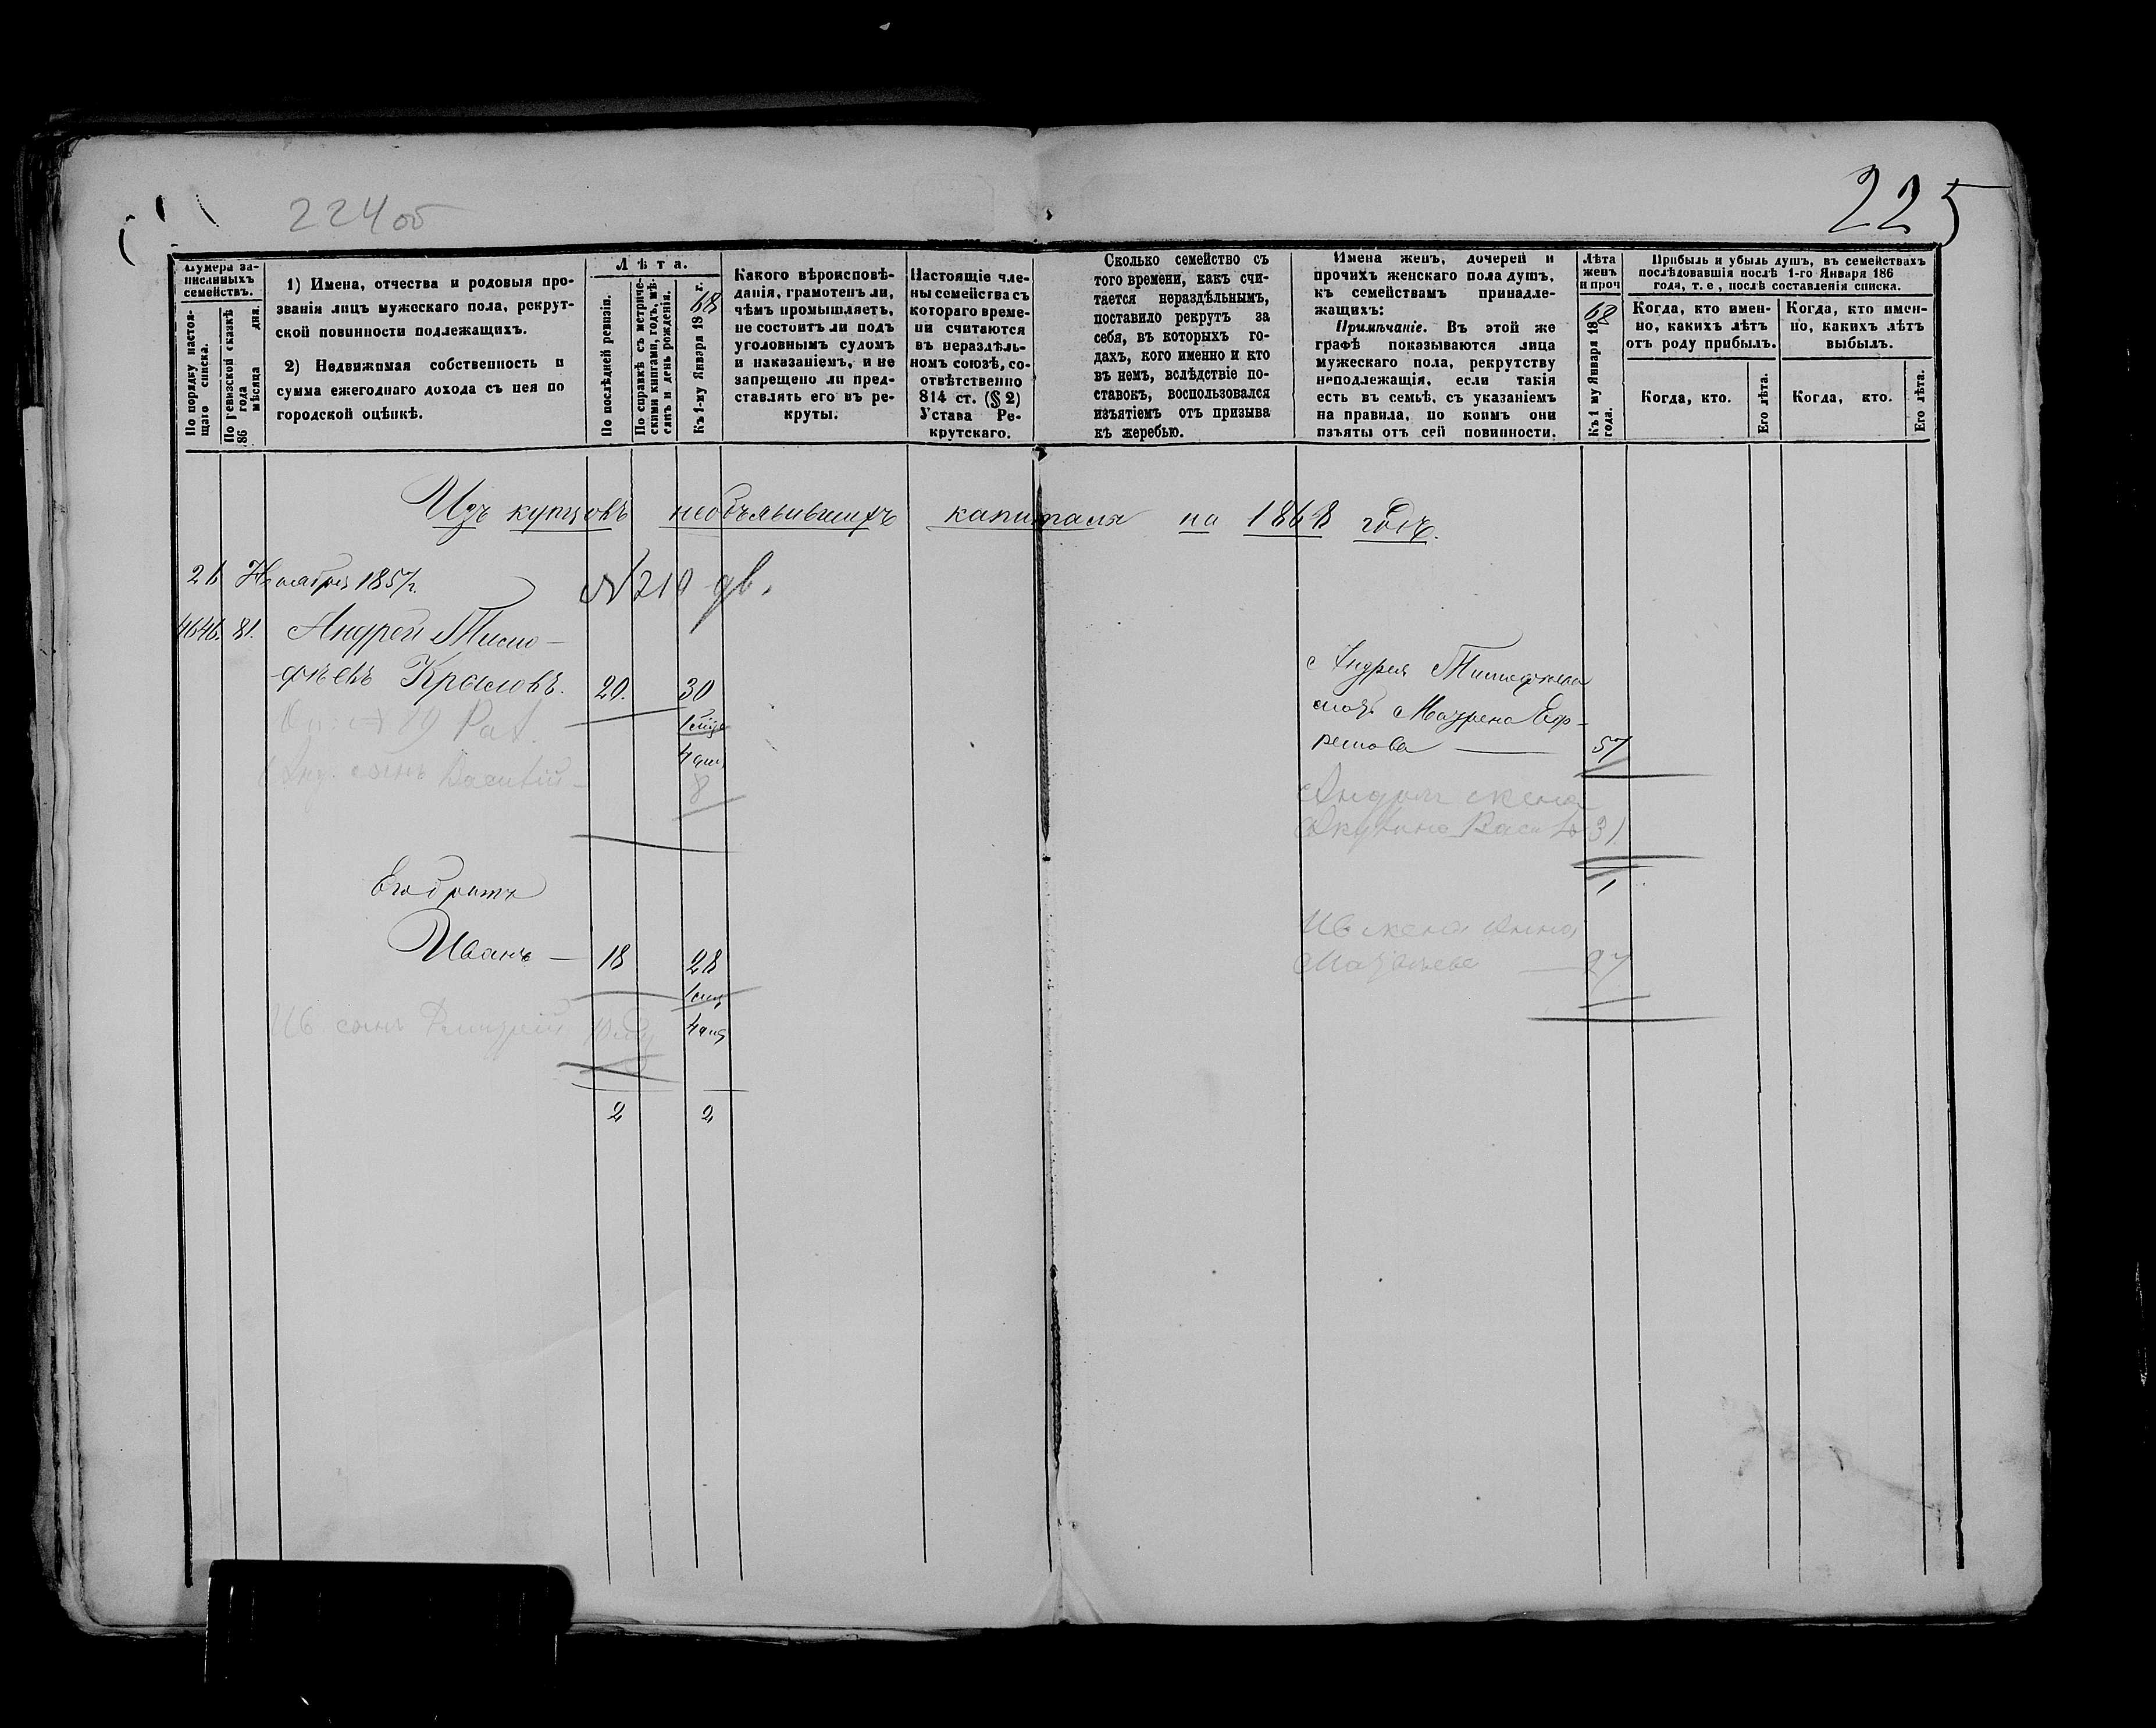 224 об
225
Нумера за-
писанныхъ
семействъ.
По порядку настоя-
щаго списка.
По ревизской сказкѣ
186 года
мѣсяца дня.
1) Имена, отчества и родовыя про-
званія лицъ мужескаго пола, рекрут-
ской повинности подлежащихъ.
2) Недвижимая собственность и
сумма ежегоднаго дохода съ нея по
городской оцѣнкѣ.
Лѣта.
По послѣдней ревизіи.
По справкѣ съ метриче-
скими книгами, годъ, мѣ-
сяцъ и день рожденія.
Къ 1-му Января 1868 г.
Какого вѣроисповѣ-
данія, грамотенъ ли,
чѣмъ промышляетъ,
не состоитъ ли подъ
уголовнымъ судомъ
и наказаніемъ, и не
запрещено ли пред-
ставлять его въ ре-
круты.
Настоящіе чле-
ны семейства съ
котораго време-
ни считаются
въ нераздѣль-
номъ союзѣ, со-
отвѣтственно
814 ст. (§ 2)
Устава Ре-
крутскаго.
Сколько семейство съ
того времени, какъ счи-
тается нераздѣльнымъ,
поставило рекрутъ за
себя, въ которыхъ го-
дахъ, кого именно и кто
въ немъ, вслѣдствіе по-
ставокъ, воспользовался
изъятіемъ отъ призыва
къ жеребью.
Имена женъ, дочерей и
прочихъ женскаго пола душъ,
къ семействамъ принадле-
жащихъ:
Примѣчаніе. Въ этой же
графѣ показываются лица
мужескаго пола, рекрутству
неподлежащія, если такія
есть въ семьѣ, съ указаніемъ
на правила, по коимъ они
изъяты отъ сей повинности.
Лѣта
женъ
и проч
Къ 1 му Января 1868
года.
Прибыль и убыль душъ, въ семействахъ
послѣдовавшія послѣ 1-го Января 186
года, т. е, послѣ составленія списка.
Когда, кто имен-
но, какихъ лѣтъ
отъ роду прибылъ.
Когда, кто имен-
но, какихъ лѣтъ
выбылъ.
Когда, кто.
Его лѣта.
Когда, кто.
Его лѣта.
Изъ купцовъ необъявившихъ капитала на 1868 годъ.
Ноября 1857г.
N 210 дв.
81. Андрей Тимо-
фѣевъ Крысовъ. 20. 30
Анд. сынъ Василій 8
Его братъ
Иванъ — 18 28
Ив. сынъ Дмитрій
2 2
Андрея Тимофѣева
мать Маурена Еф-
ремова — 57
Андрея жена
Акулина Васил 31
1
Ив жена Анна
Матвѣева — 27